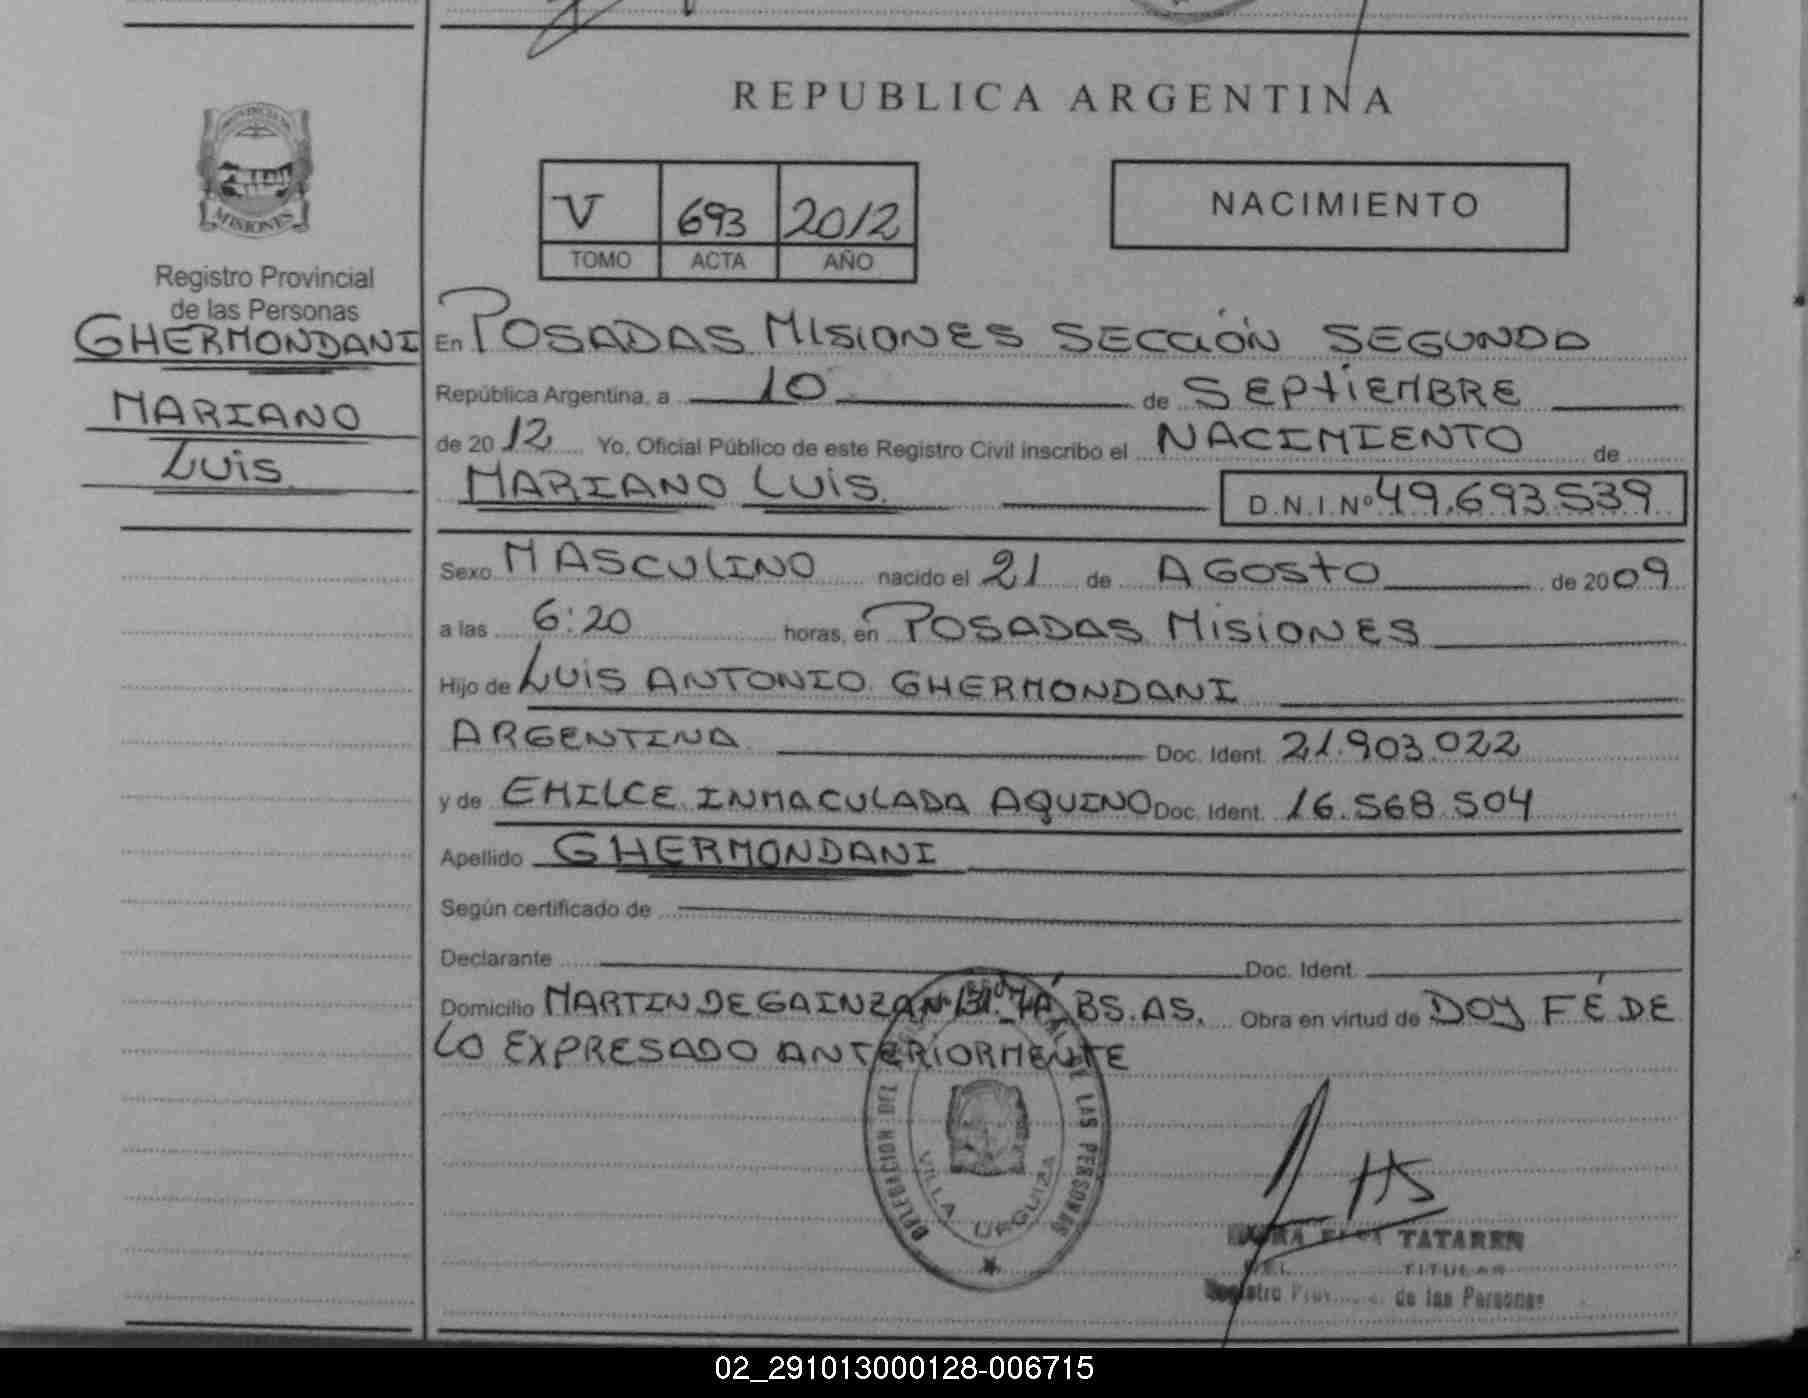 REPUBLICA ARGENTINA
PROVINCIA DE
MISIONES
Registro Provincial
de las Personas
GHERMONDANI
MARIANO
LUIS
V 693 2012
TOMO ACTA AÑO
NACIMIENTO
En POSADAS MISIONES SECCIÓN SEGUNDA
República Argentina, a 10 de SEPTIEMBRE
de 2012 Yo, Oficial Público de este Registro Civil inscribo el NACIMIENTO de
MARIANO LUIS. D.N.I.Nº 49.693.539
Sexo MASCULINO nacido el 21 de AGOSTO de 2009
a las 6:20 horas, en POSADAS MISIONES
Hijo de LUIS ANTONIO GHERMONDANI
ARGENTINA Doc. Ident. 21.903.022
y de EMILCE INMACULADA AQUINO Doc. Ident. 16.568.504
Apellido GHERMONDANI
Según certificado de
Declarante Doc. Ident.
Domicilio MARTIN DE GAINZA Nº 131. 7A BS.AS. Obra en virtud de DOY FÉ DE
LO EXPRESADO ANTERIORMENTE
DELEGACION DEL LAS PERSONAS
VILLA URQUIZA
TATAREN
TITULAR
de las Personas
02_291013000128-006715